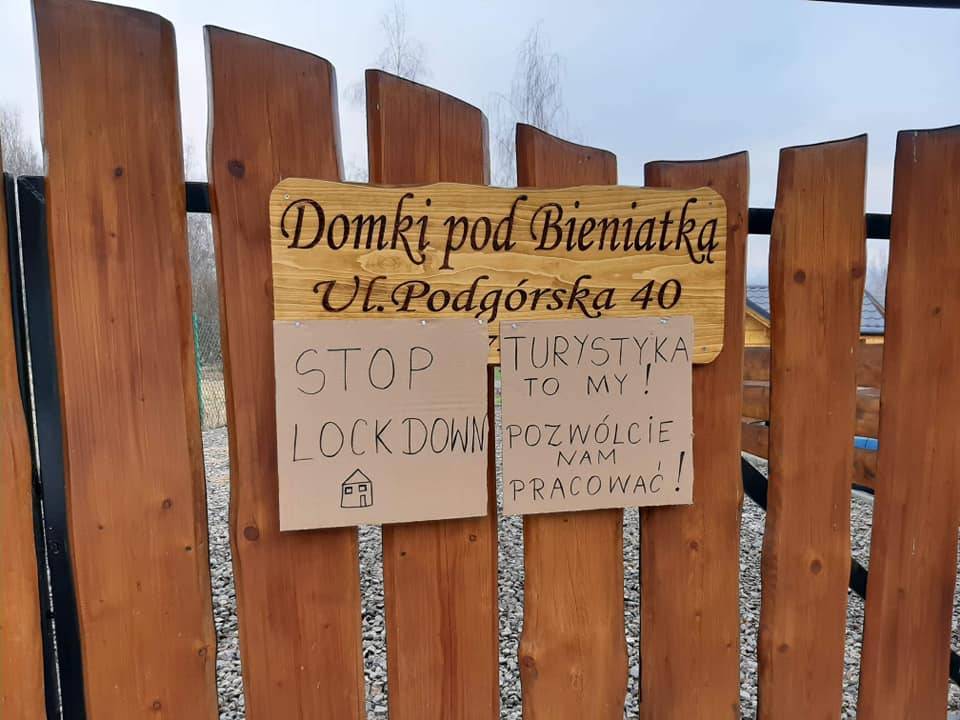 Domki pod Bieniatką
Ul.Podgórska 40
STOP
LOCKDOWN
TURYSTYKA
TO MY!
POZWÓLCIE
NAM
PRACOWAĆ!